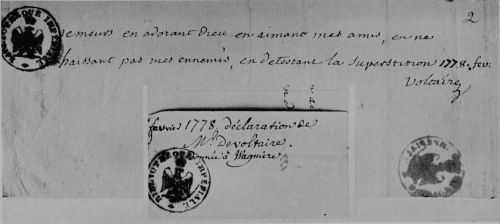 2
je meurs en adorant Dieu en aimant mes amis, en ne
haissant pas mes ennemis, en detestant la superstition 1778. fev.
Voltaire
fevrier 1778, déclaration de
Mr. de Voltaire.
donnée à Wagnière
BIBLIOTHEQUE IMPERIALE